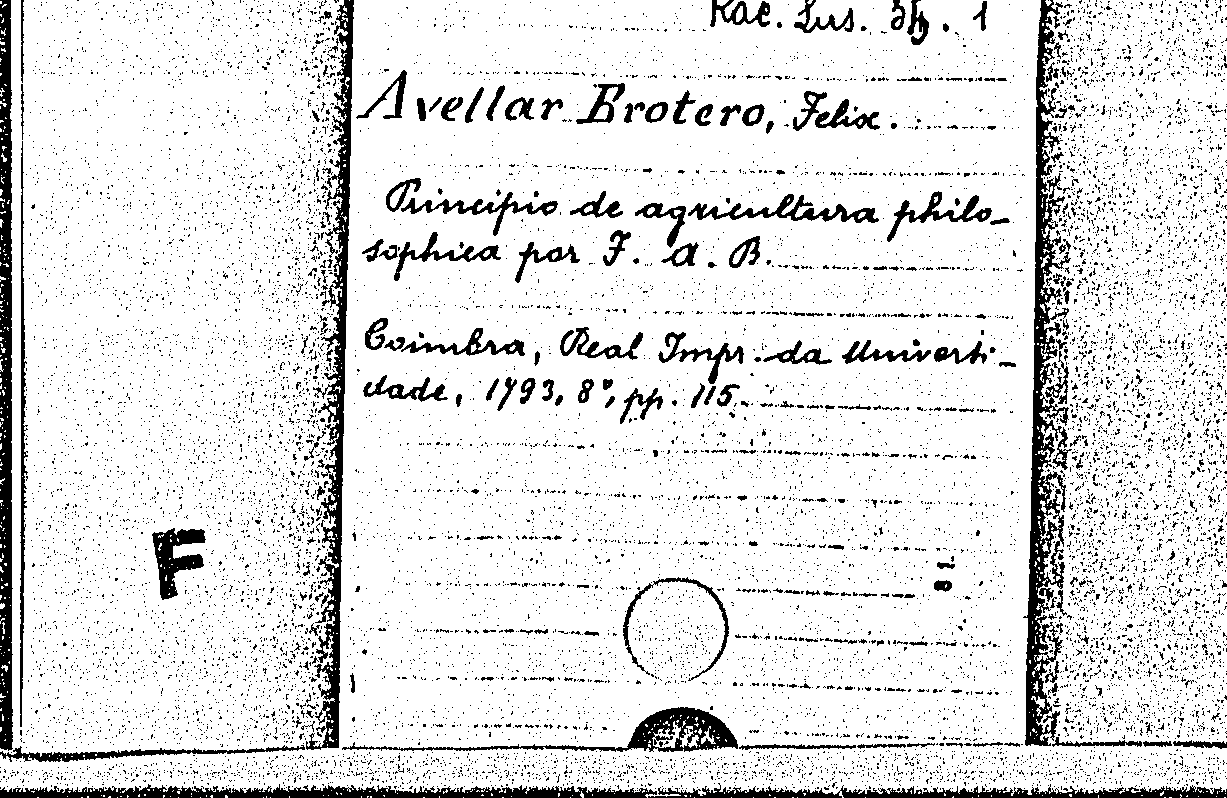 Rac. Lus. 57, 1
Avellar Brotero, Felix.
Principio de agricultura philo-
sophica por F. A. B.
Coimbra, Real Impr. da Universi-
dade, 1793, 8°, pp. 115.
F